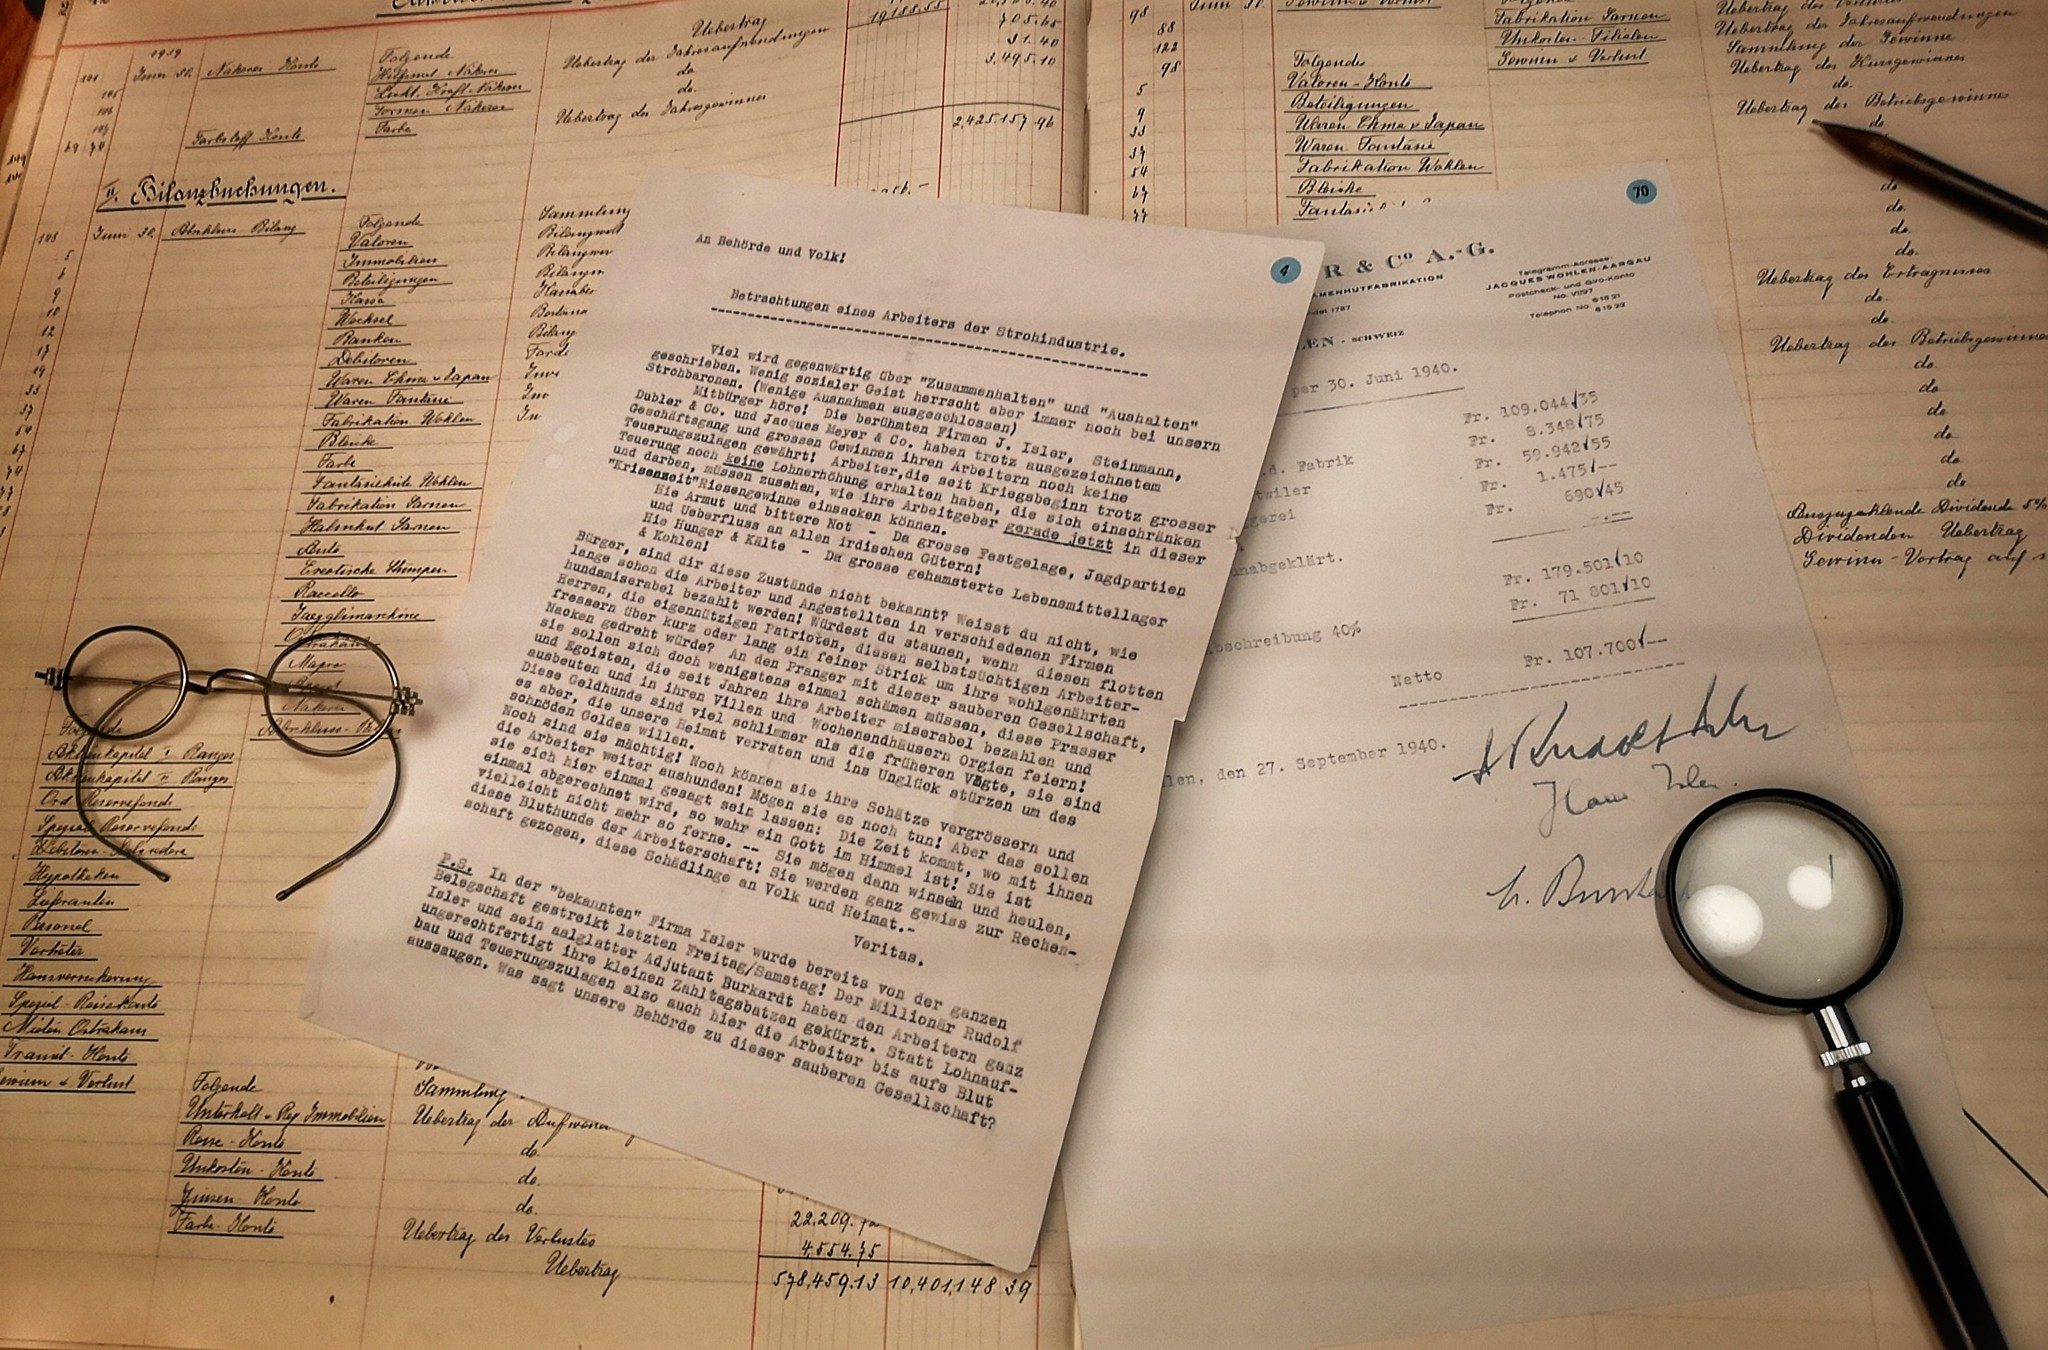 Uebertrag
19188.55
705.65
31.40
3,495.10
2,425,157.96
1939
101 Juni 30. Näherei Konto
Folgende
Hilfsmat. Näherei
Elekt. Kraft-Näherei
Formen Näherei
Farbe
Uebertrag der Jahresaufwendungen
do.
do.
Uebertrag des Jahresgewinnes
Farbstoff Konto
II. Bilanzbuchungen.
108 Juni 30. Abschluss-Bilanz
Folgende
5 Valoren
6 Immobilien
9 Beteiligungen
9 Kassa
10 Wechsel
12 Banken
17 Debitoren
19 Waren China & Japan
33 Waren Fantasie
37 Fabrikation Wohlen
54 Bleiche
67 Farbe
74 Fantasiehüte Wohlen
77 Fabrikation Sarnen
Halmhut Sarnen
Auto
Exotische Stumpen
Raccello
Jaegglimaschine
Mapro
Näherei
Abschluss-
Sammlung
Folgende
Aktienkapital I. Ranges
Aktienkapital II. Ranges
Ord. Reservefonds
Spezial-Reservefonds
Debitoren-Delcredere
Hypotheken
Lieferanten
Personal
Vertreter
Spezial-Reisekonto
Transit-Konto
Gewinn & Verlust
Folgende
Unterhalt u. Rep. Immobilien
Reise-Konto
Unkosten-Konto
Zinsen-Konto
Farbe-Konto
Sammlung
Uebertrag der Aufwen
do.
do.
do.
Uebertrag des Verlustes
Uebertrag
22,209.
4,554.75
578,459.13 10,401,148 39
98 Juni 30.
88
122
98
5
9
33
37
54
67
77
Gewinn & Verlust
Folgende
Valoren-Konto
Beteiligungen
Waren China & Japan
Waren Fantasie
Fabrikation Wohlen
Bleiche
Folgende
Fabrikation Sarnen
Unkosten-Filialen
Gewinn & Verlust
Uebertrag des Verlustes
Uebertrag der Jahresaufwendungen
Sammlung der Gewinne
Uebertrag des Kursgewinnes
do.
Uebertrag des Betriebsgewinnes
do
do.
do
do.
do.
do.
Uebertrag des Erträgnisses
do.
do.
Uebertrag des Betriebsgewinnes
do.
do.
do
do.
do.
do
Auszuzahlende Dividende 5%
Dividenden Uebertrag
Gewinn-Vortrag auf
4
An Behörde und Volk!
Betrachtungen eines Arbeiters der Strohindustrie.
Viel wird gegenwärtig über "Zusammenhalten" und "Aushalten"
geschrieben. Wenig sozialer Geist herrscht aber immer noch bei unsern
Strohbaronen. (Wenige Ausnahmen ausgeschlossen)
Mitbürger höre! Die berühmten Firmen J. Isler, Steinmann,
Dubler & Co. und Jacques Meyer & Co. haben trotz ausgezeichnetem
Geschäftsgang und grossen Gewinnen ihren Arbeitern noch keine
Teuerungszulagen gewährt! Arbeiter,die seit Kriegsbeginn trotz grosser
Teuerung noch keine Lohnerhöhung erhalten haben, die sich einschränken
und darben, müssen zusehen, wie ihre Arbeitgeber gerade jetzt in dieser
"Krisenzeit"Riesengewinne einsacken können.
Hie Armut und bittere Not - Da grosse Festgelage, Jagdpartien
und Ueberfluss an allen irdischen Gütern!
Hie Hunger & Kälte - Da grosse gehamsterte Lebensmittellager
& Kohlen!
Bürger, sind dir diese Zustände nicht bekannt? Weisst du nicht, wie
lange schon die Arbeiter und Angestellten in verschiedenen Firmen
hundsmiserabel bezahlt werden! Würdest du staunen, wenn diesen flotten
Herren, die eigennützigen Patrioten, diesen selbstsüchtigen Arbeiter-
fressern über kurz oder lang ein feiner Strick um ihre wohlgenährten
Nacken gedreht würde? An den Pranger mit dieser sauberen Gesellschaft,
sie sollen sich doch wenigstens einmal schämen müssen, diese Prasser
und Egoisten, die seit Jahren ihre Arbeiter miserabel bezahlen und
ausbeuten und in ihren Villen und Wochenendhäusern Orgien feiern!
Diese Geldhunde sind viel schlimmer als die früheren Vögte, sie sind
es aber, die unsere Heimat verraten und ins Unglück stürzen um des
schnöden Geldes willen.
Noch sind sie mächtig! Noch können sie ihre Schätze vergrössern und
die Arbeiter weiter aushunden! Mögen sie es noch tun! Aber das sollen
sie sich hier einmal gesagt sein lassen: Die Zeit kommt, wo mit ihnen
einmal abgerechnet wird, so wahr ein Gott im Himmel ist! Sie ist
vielleicht nicht mehr so ferne. -- Sie mögen dann winseln und heulen,
diese Bluthunde der Arbeiterschaft! Sie werden ganz gewiss zur Rechen-
schaft gezogen, diese Schädlinge an Volk und Heimat.-
Veritas.
P.S. In der "bekannten" Firma Isler wurde bereits von der ganzen
Belegschaft gestreikt letzten Freitag/Samstag! Der Millionär Rudolf
Isler und sein aalglatter Adjutant Burkardt haben den Arbeitern ganz
ungerechtfertigt ihre kleinen Zahltagsbatzen gekürzt. Statt Lohnauf-
bau und Teuerungszulagen also auch hier die Arbeiter bis aufs Blut
aussaugen. Was sagt unsere Behörde zu dieser sauberen Gesellschaft?
70
R & Co A.-G.
AMENHUTFABRIKATION
ndet 1787
LEN - SCHWEIZ
Telegramm-Adresse:
JACQUES WOHLEN-AARGAU
Postcheck- und Giro-Konto
No. VI/97
Telephon No. 61521
61522
per 30. Juni 1940.
Fr. 109.044/35
Fr. 8.348/75
.d. Fabrik Fr. 59.942/55
twiler Fr. 1.475/--
gerei Fr. 690/45
-.--
unabgeklärt.
Fr. 179.501/10
bschreibung 40% Fr. 71 801/10
Netto Fr. 107.700/--
len, den 27. September 1940.